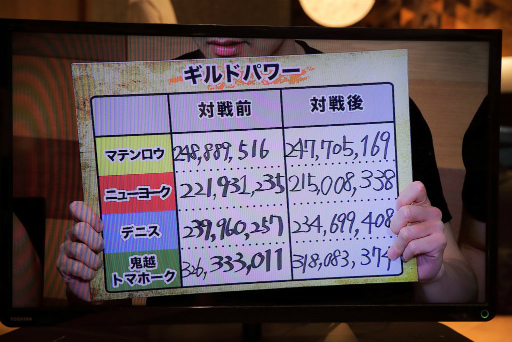 ギルドパワー
対戦前 対戦後
マテンロウ 248,889,516 247,705,169
ニューヨーク 221,931,235 215,008,338
デニス 239,960,257 234,699,408
鬼越
トマホーク 326,333,011 318,083,374
TOSHIBA